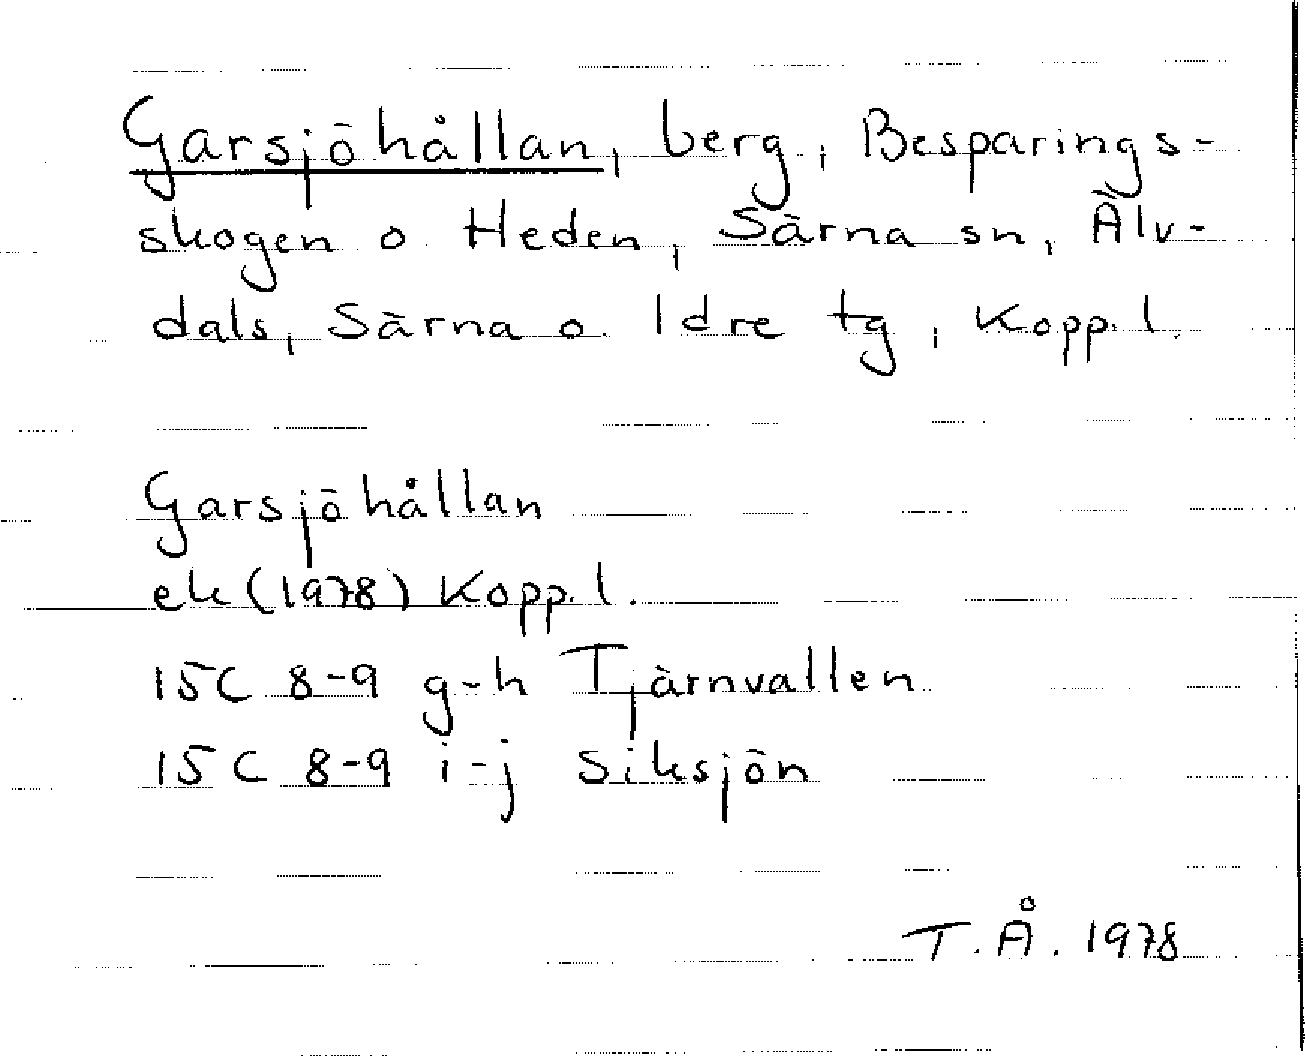 Garsjöhållan, berg, Besparings-
skogen o. Heden, Särna sn, Älv-
dals, Särna o. Idre tg, Kopp. l.
Garsjöhållan
ek (1978) Kopp. l.
15C 8-9 g-h Tjärnvallen
15C 8-9 i-j Siksjön
T. Å. 1978